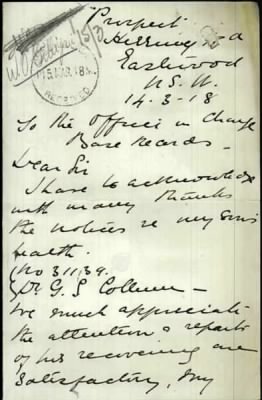 Prospect
Eastwood
N.S.W.
14-3-18
RECEIVED
To the Officer in Charge
Base Records -
Dear Sir
I have to acknowledge
with many thanks
the notices re my sons
health.
(No 31139.
G. S.
We much appreciate
the attention & reports
of his recovering are
satisfactory, my